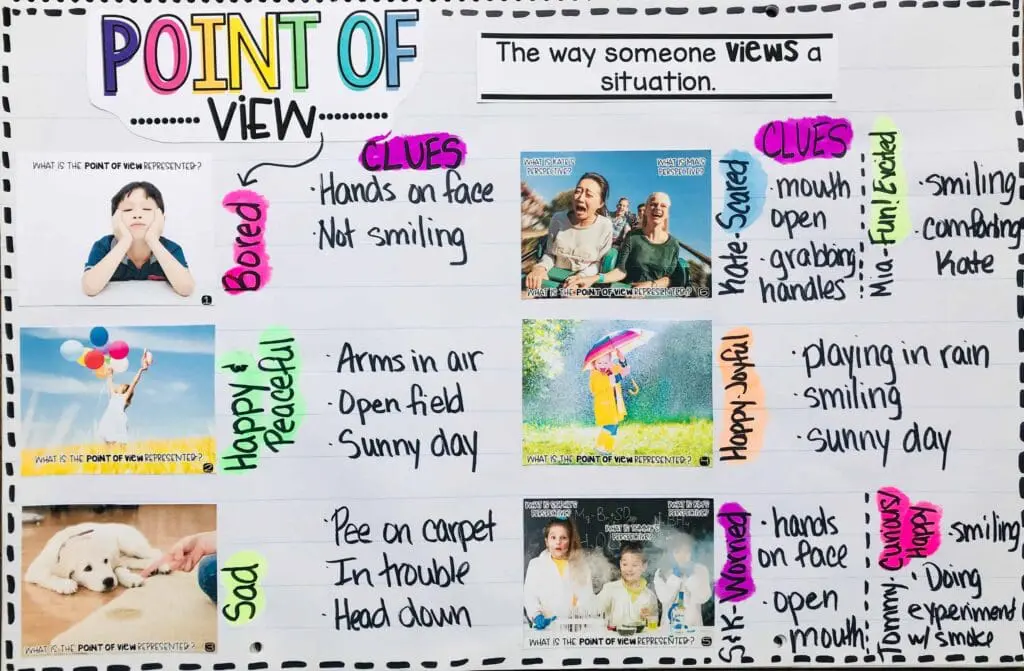 POINT OF
VIEW
The way someone VIEWS a
situation.
WHAT IS THE POINT OF VIEW REPRESENTED?
1
Bored
CLUES
·Hands on face
·Not smiling
WHAT IS THE POINT OF VIEW REPRESENTED?
2
Happy &
Peaceful
·Arms in air
·Open field
·Sunny day
3
Sad
·Pee on carpet
In trouble
·Head down
WHAT IS KATE'S
PERSPECTIVE?
WHAT IS MIA'S
PERSPECTIVE?
WHAT IS THE POINT OF VIEW REPRESENTED?
6
Kate-Scared
CLUES
·mouth
open
·grabbing
handles
Mia-Fun! Excited
·smiling
·comforting
Kate
WHAT IS THE POINT OF VIEW REPRESENTED?
4
Happy-Joyful
·playing in rain
·smiling
·sunny day
WHAT IS SOPHIE'S
PERSPECTIVE?
WHAT IS TOMMY'S
PERSPECTIVE?
WHAT IS KIM'S
PERSPECTIVE?
WHAT IS THE POINT OF VIEW REPRESENTED?
5
S&K-Worried
·hands
on face
·open
mouth
Tommy-Curious/
Happy
·smiling
·Doing
experiment
w/ smoke